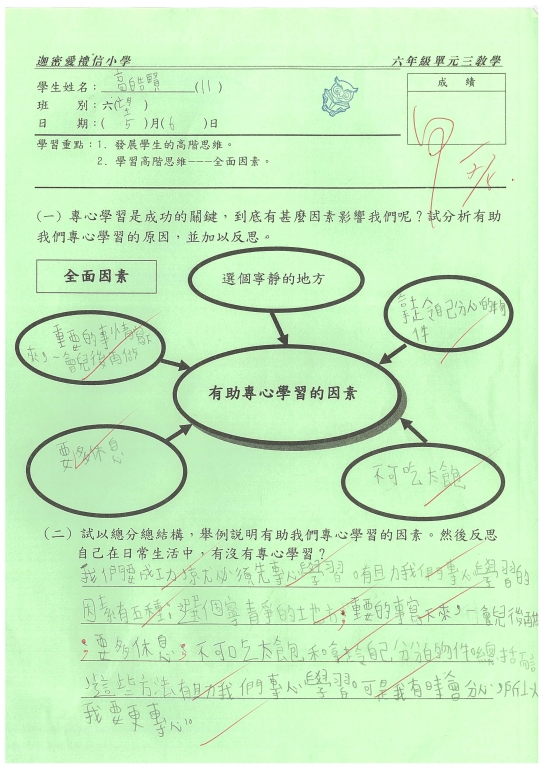 迦密愛禮信小學 六年級單元三教學
學生姓名：高皓賢(11) 成績
班 別：六(望)
日 期：(5)月(6)日 甲
學習重點：1. 發展學生的高階思維。
2. 學習高階思維---全面因素。
(一) 專心學習是成功的關鍵，到底有甚麼因素影響我們呢？試分析有助
我們專心學習的原因，並加以反思。
全面因素
選個寧靜的地方
拿走令自己分心的物
件
重要的事情寫下
來，一會兒後再做
有助專心學習的因素
要多休息
不可吃太飽
(二) 試以總分總結構，舉例說明有助我們專心學習的因素。然後反思
自己在日常生活中，有沒有專心學習？
我們要成功就必須先專心學習。有助我們專心學習的
因素有五種：選個寧靜的地方；重要的事寫下來，一會兒後再做
；要多休息；不可吃太飽和拿走令自己分心的物件。總括而言
，這些方法有助我們專心學習。可是我有時會分心，所以
我要更專心。